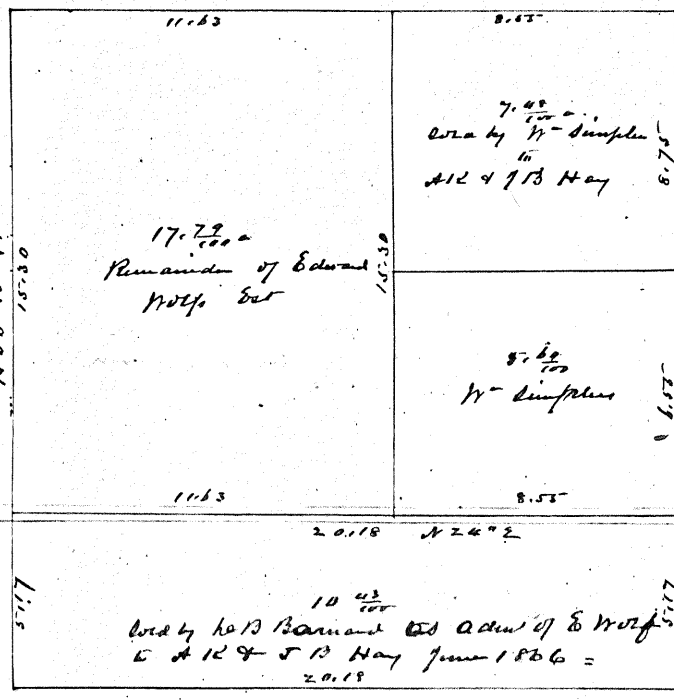 11.63
8.55
7.48/100 a.
Sold by Wm Simpler
to
AK & JB Hay
8.75
17.79/100 a
Remainder of Edward
Wolfs Est
15.30
15.30
5.69/100
Wm Simplers
6.55
11.63
8.55
20.18 N 24° E
5.17
5.17
10 43/100
Sold by Barnard as adm of E Wolf
to AK & JB Hay June 1866 =
20.18